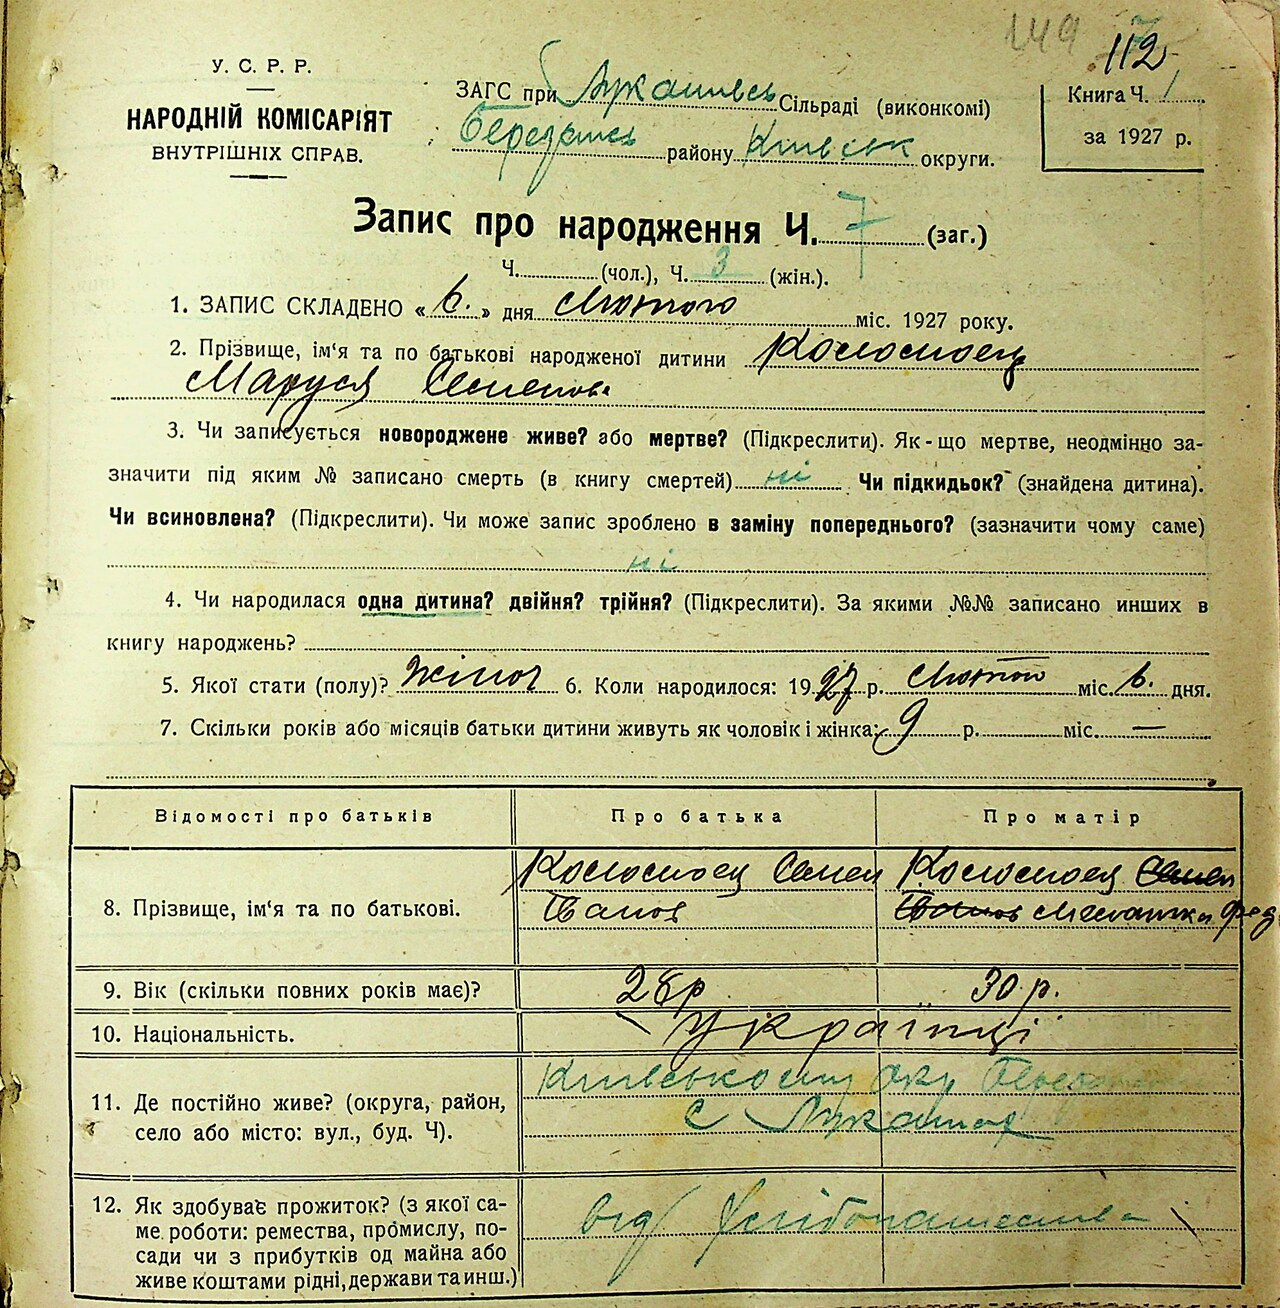 149
112
У. С. Р. Р.
НАРОДНІЙ КОМІСАРІЯТ
ВНУТРІШНІХ СПРАВ.
ЗАГС при Лукашивсь Сільраді (виконкомі)
району Київськ округи.
Книга Ч. 1
за 1927 р.
Запис про народження Ч. 7 (заг.)
Ч. (чол.), Ч. 3 (жін.).
1. ЗАПИС СКЛАДЕНО «6.» дня Лютого міс. 1927 року.
2. Прізвище, ім'я та по батькові народженої дитини
Маруся Семенова
3. Чи записується новороджене живе? або мертве? (Підкреслити). Як-що мертве, неодмінно за-
значити під яким № записано смерть (в книгу смертей) ні Чи підкидьок? (знайдена дитина).
Чи всиновлена? (Підкреслити). Чи може запис зроблено в заміну попереднього? (зазначити чому саме)
ні
4. Чи народилася одна дитина? двійня? трійня? (Підкреслити). За якими №№ записано инших в
книгу народжень?
5. Якої стати (полу)? Жіноч 6. Коли народилося: 1927 р. Лютого міс. 6. дня.
7. Скільки років або місяців батьки дитини живуть як чоловік і жінка: 9 р. міс. —
Відомості про батьків
Про батька
Про матір
8. Прізвище, ім'я та по батькові.
Семен
Іванов
9. Вік (скільки повних років має)?
28 р
30 р.
10. Національність.
Українці
11. Де постійно живе? (округа, район,
село або місто: вул., буд. Ч).
с Лукаші
12. Як здобуває прожиток? (з якої са-
ме роботи: ремества, промислу, по-
сади чи з прибутків од майна або
живе коштами рідні, держави та инш.)
від Хлібопашества